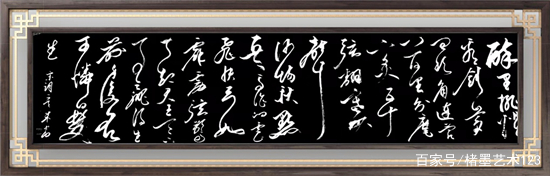 醉里挑灯
看剑梦
回吹角连营
八百里分麾
下炙五十
弦翻塞外
声
沙场秋点
兵马作的卢
飞快弓如
霹雳弦惊
了却君王天下
事赢得生
前身后名
可怜白发
生
宋词
百家号/楮墨艺术123